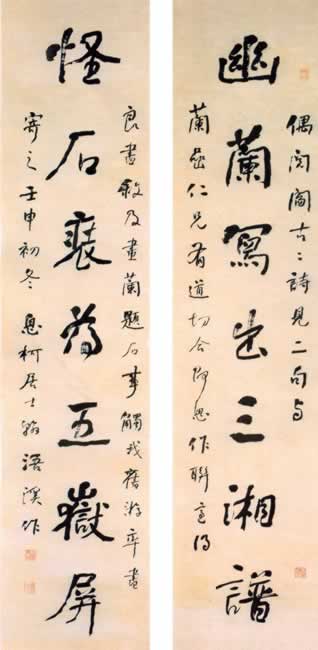 幽蘭寫出三湘譜
偶閱閻古〻詩見二句与
蘭喦仁兄有道切合即思作聯得
怪石裒為五嶽屏
良書敘及畫蘭題石事觸我舊游率書
寄之壬申初冬息柯居士翰浯溪作